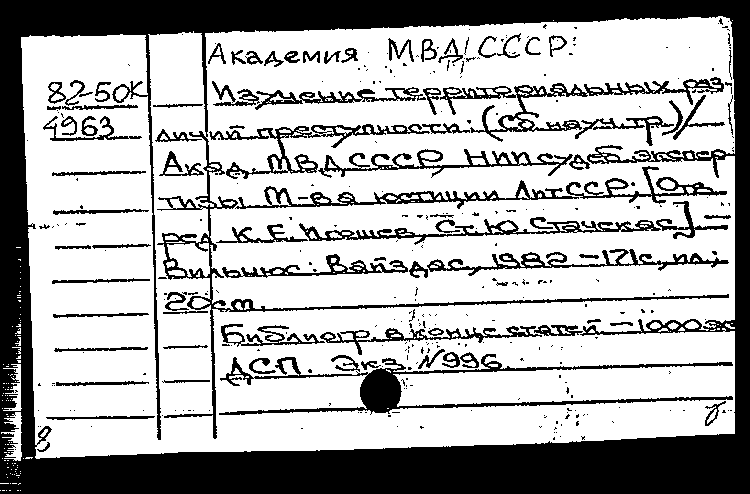 Академия МВД СССР.
82-50К Изучение территориальных раз-
4963 личий преступности: (Сб. науч. тр.) /
Акад. МВД СССР, НИИ судеб. экспер
тизы М-ва юстиции ЛитССР; [Отв.
ред. К. Е. Игошев, Ст. Ю. Стачёкас]. —
Вильнюс: Вайздас, 1982 - 171 с., ил.;
20 см.
Библиогр. в конце статей - 1000 эк
ДСП. Экз. №996.
8